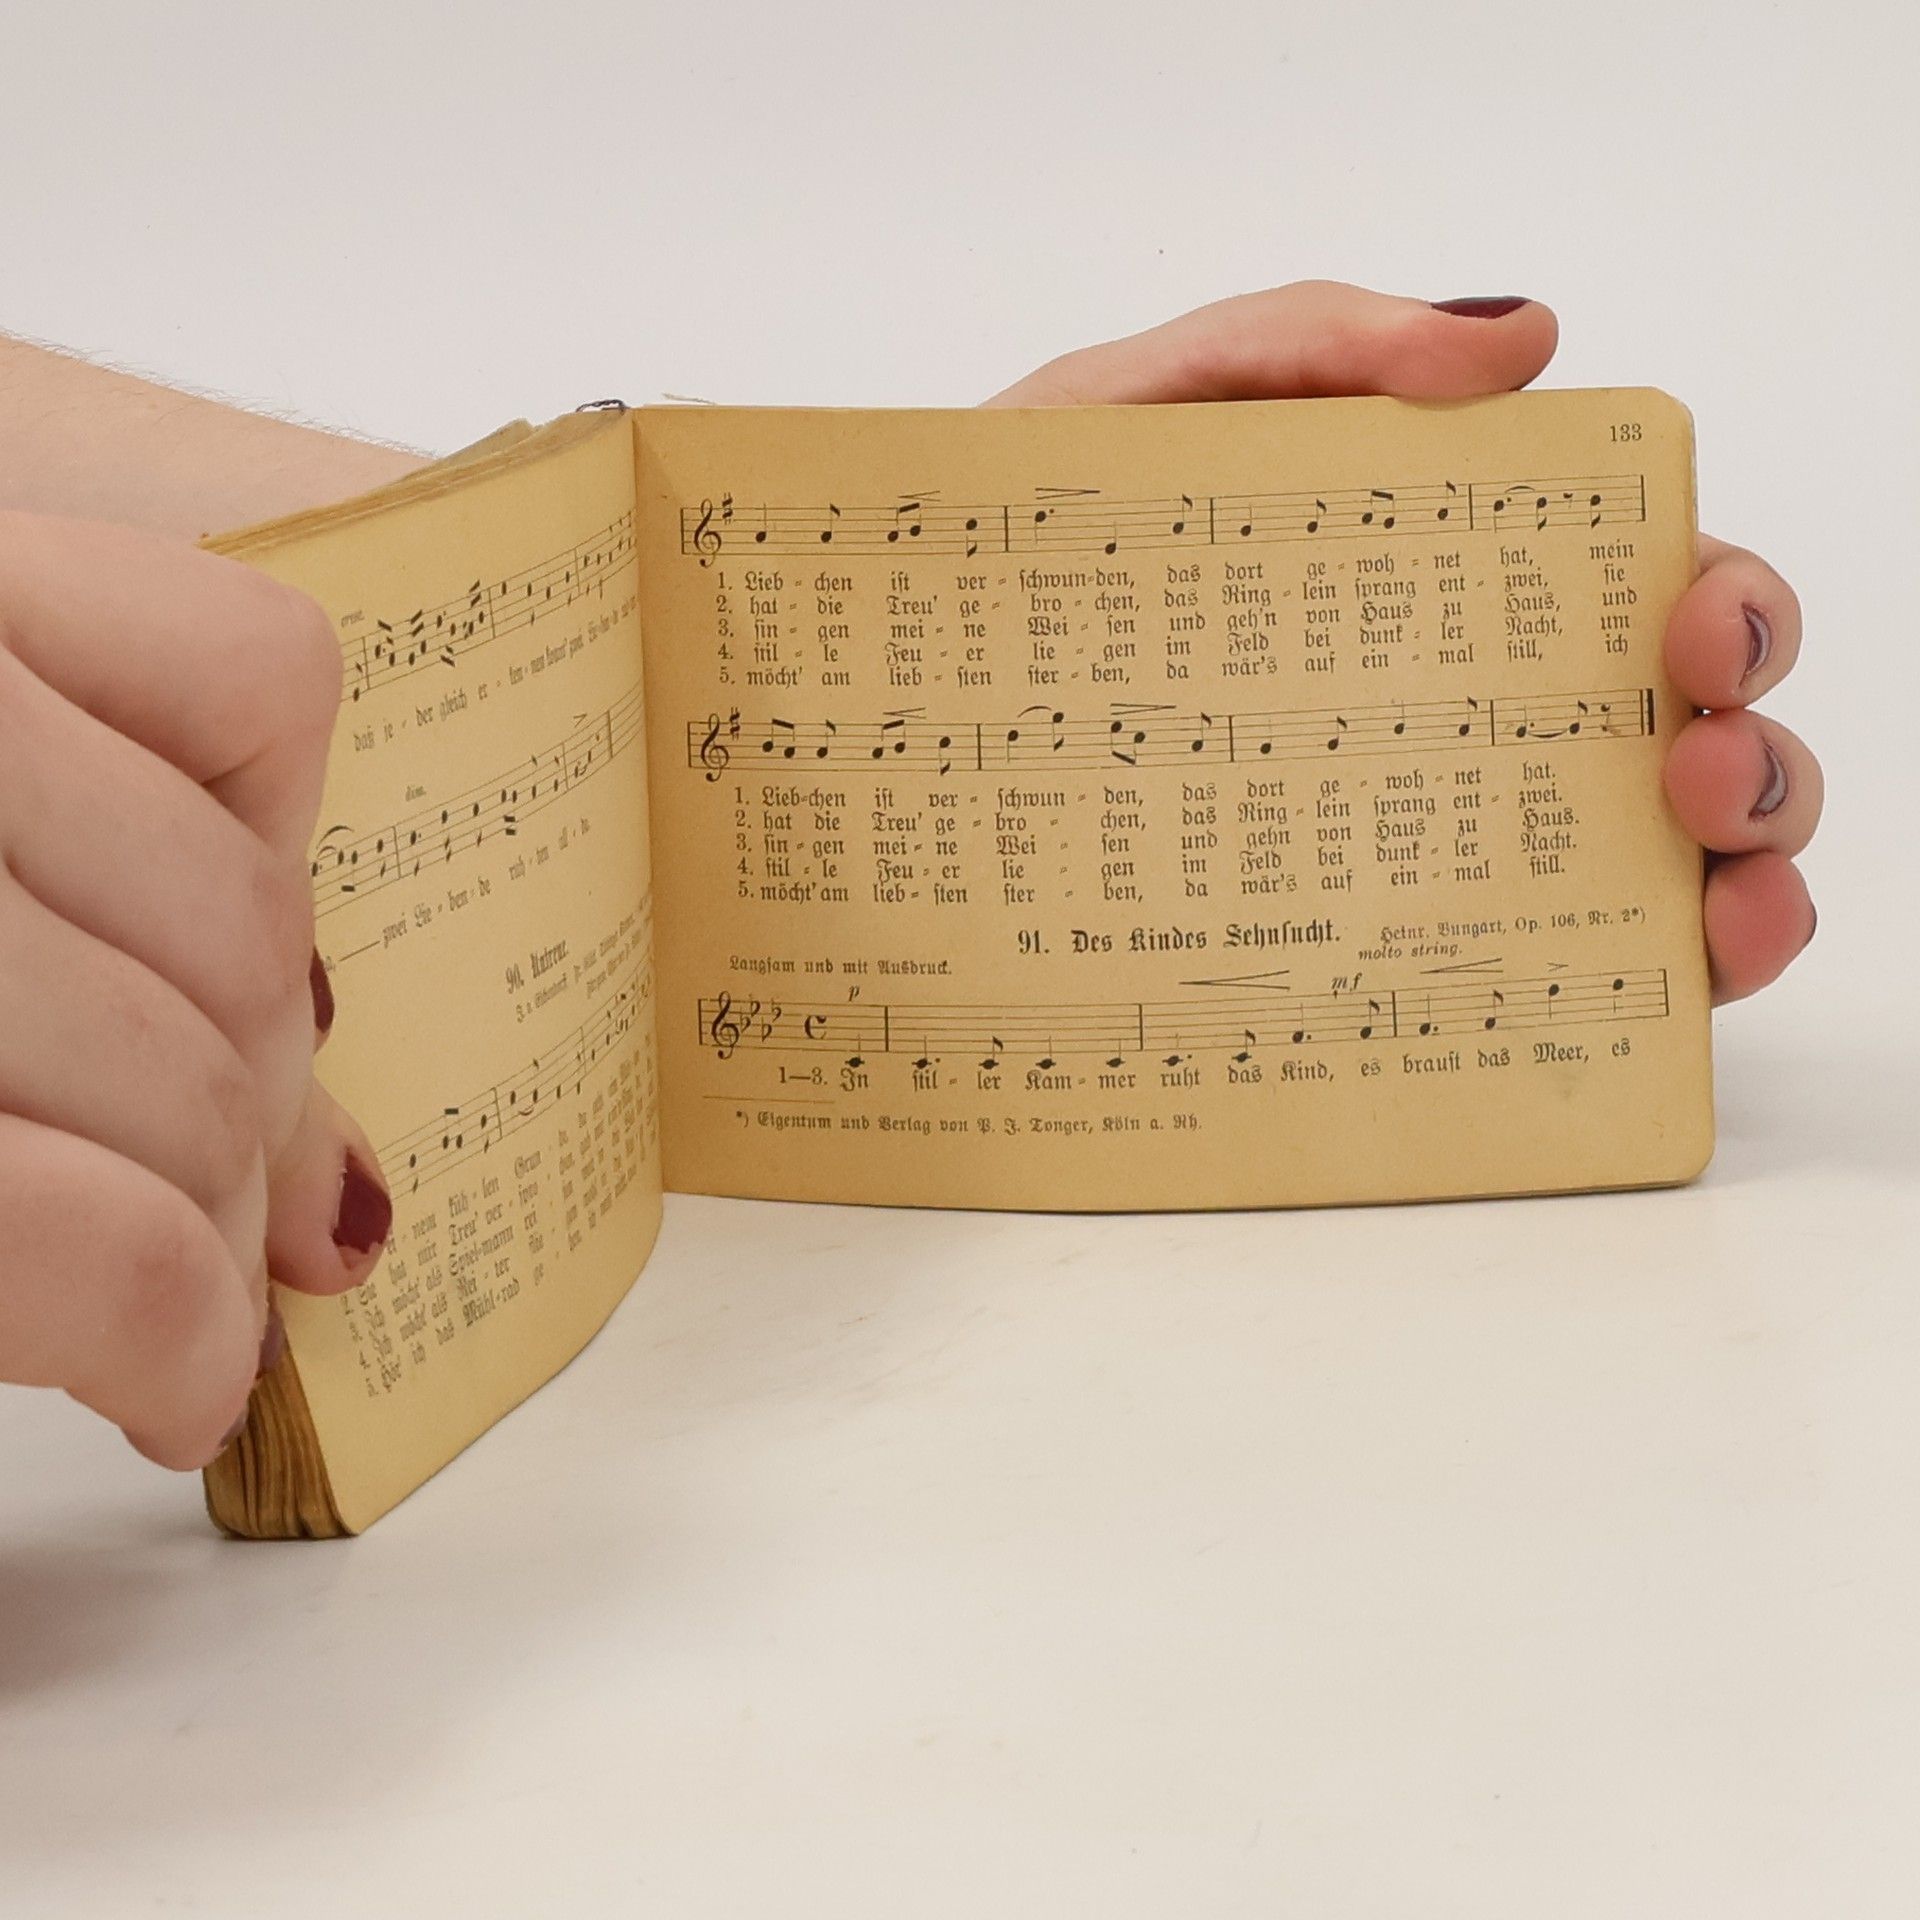 cresc.
daß je - der gleich er - ken-nen
dim.
zwei Lie - ben - de ruh - ten
90. Untreue.
J. v. Eichendorff.
ei - nem küh - len Grun - de, da
2. Sie hat mir Treu' ver - spro -
3. Ich möcht' als Spiel-mann rei -
4. Ich möcht' als Rei - ter flie -
5. Hör' ich das Mühl-rad ge - hen,
133
1. Lieb - chen ist ver - schwun-den, das dort ge - woh - net hat, mein
2. hat - die Treu' ge - bro - chen, das Ring - lein sprang ent - zwei, sie
3. sin - gen mei - ne Wei - sen und geh'n von Haus zu Haus, und
4. stil - le Feu - er lie - gen im Feld bei dunk - ler Nacht, um
5. möcht' am lieb - sten ster - ben, da wär's auf ein - mal still, ich
1. Lieb-chen ist ver - schwun - den, das dort ge - woh - net hat.
2. hat die Treu' ge - bro - chen, das Ring - lein sprang ent - zwei.
3. sin - gen mei - ne Wei - sen und gehn von Haus zu Haus.
4. stil - le Feu - er lie - gen im Feld bei dunk - ler Nacht.
5. möcht' am lieb - sten ster - ben, da wär's auf ein - mal still.
91. Des Kindes Sehnsucht. Heinr. Bungart, Op. 106, Nr. 2*)
Langsam und mit Ausdruck. molto string.
p mf
1—3. In stil - ler Kam - mer ruht das Kind, es braust das Meer, es
*) Eigentum und Verlag von P. J. Tonger, Köln a. Rh.